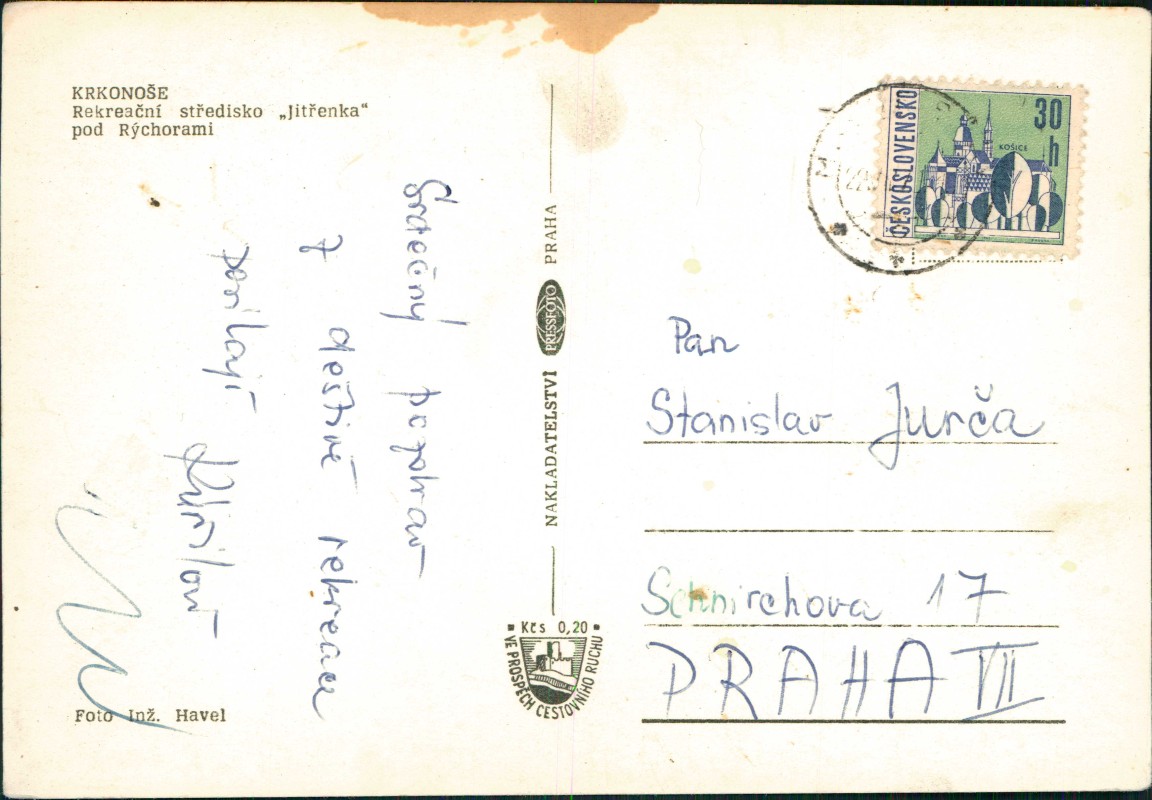 KRKONOŠE
Rekreační středisko „Jitřenka“
pod Rýchorami
Srdečný pozdrav
z deštivé rekreace
posílají
Foto Inž. Havel
NAKLADATELSTVÍ PRESSFOTO PRAHA
Kčs 0,20
VE PROSPĚCH CESTOVNÍHO RUCHU
ČESKOSLOVENSKO
30 h
KOŠICE
Pan
Stanislav Jurča
Schnirchova 17
PRAHA VII